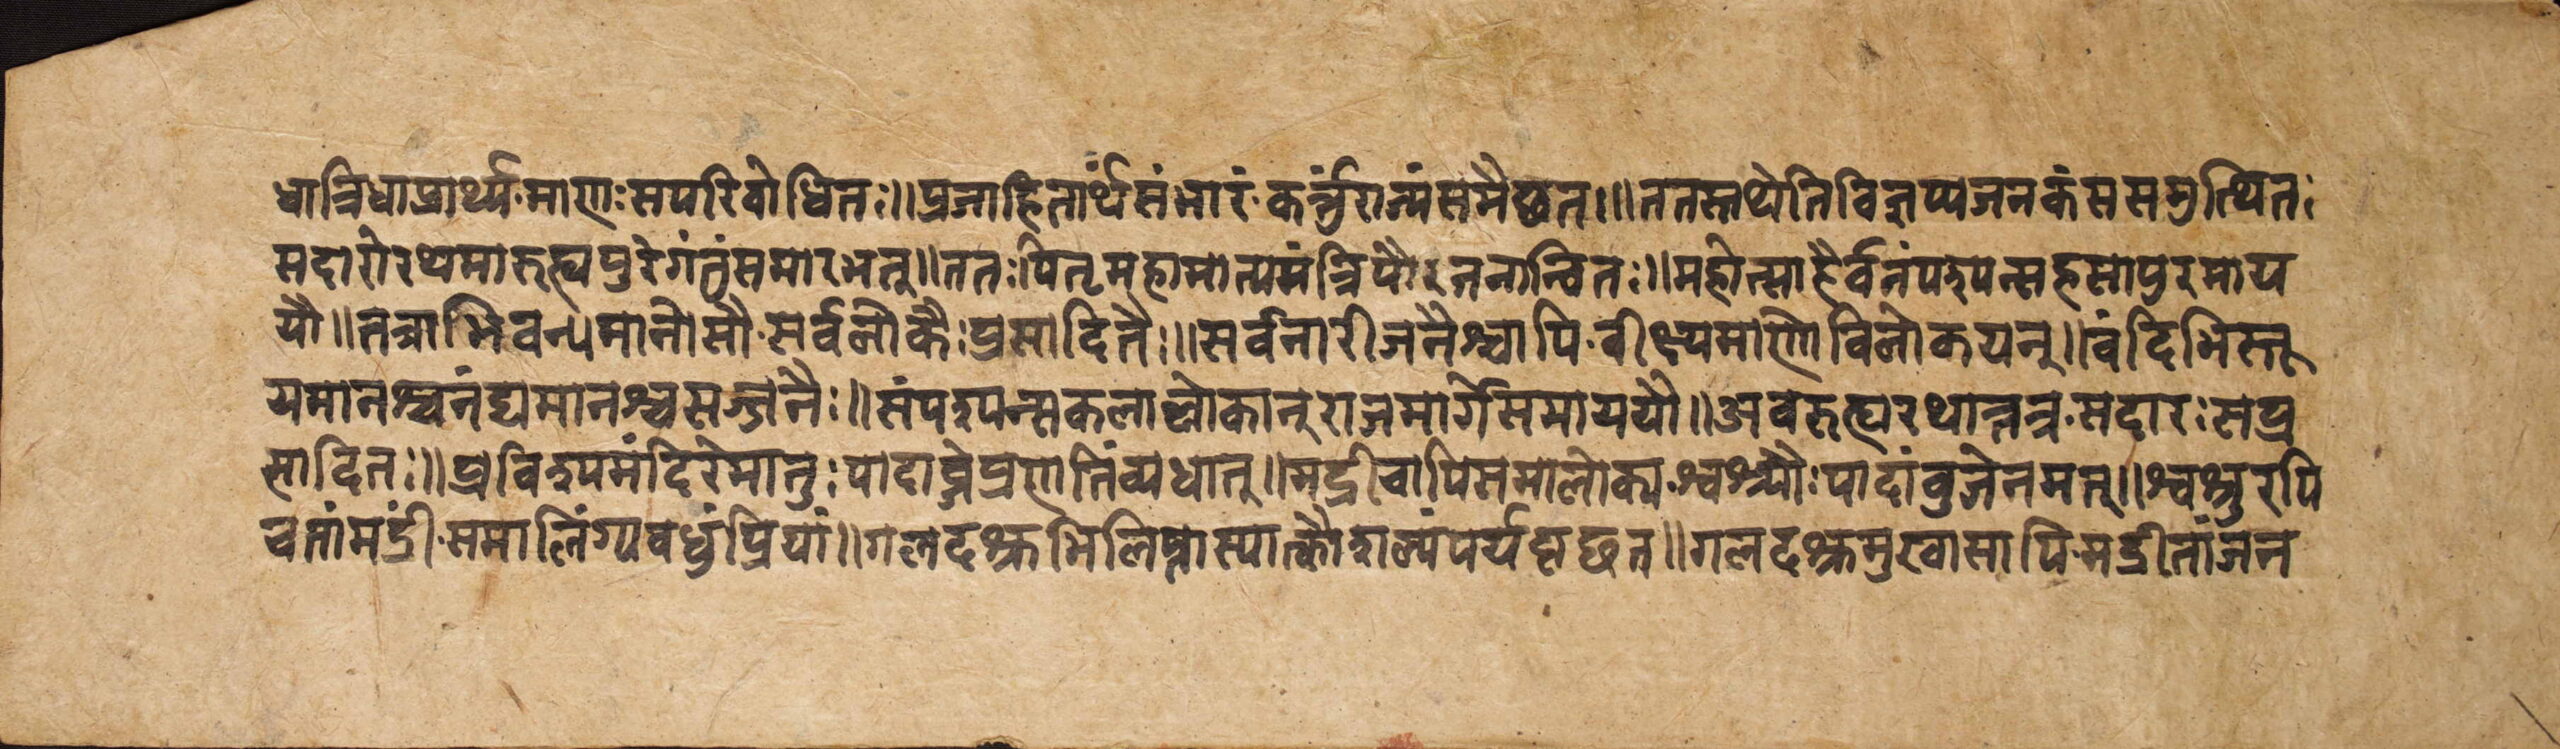 धान्निधाप्रार्थ्यमाणःसपरिवोधितः॥प्रजाहितार्थसंभारंकर्त्तुंराज्यंसमैछत॥ततस्तथेतिविज्ञप्यजनकंससमुत्थितः
सदारोरथमारुह्यपुरेगंतुंसमारभत्॥ततःपितृमहामात्यमंत्रिपौरजनान्वितः॥महोत्साहैर्वनंपश्यन्सहसापुरमाय
यौ॥तत्राभिवन्द्यमानोसौसर्वलोकैःप्रसादितैः॥सर्वनारीजनैश्चापिवीक्ष्यमाणोविलोकयन्॥वंदिभिस्तू
यमानश्चनंद्यमानश्चसज्जनैः॥संपश्यन्सकलाल्लोकान्राजमार्गेसमाययौ॥अवरुह्यरथात्तत्रसदारःसप्र
सादितः॥प्रविश्यमंदिरेमातुःपादाब्जेप्रणतिंव्यधात्॥मद्रीचापिसमालोक्यश्वश्र्योःपादांवुजेनमत्॥श्वश्रुरपि
चतांमद्रीसमालिंग्यवधुंप्रियां॥गलदश्रुभिलिप्तास्यात्कौशल्यंपर्यपृछत॥गलदश्रुमुखासापिमद्रीतांजन